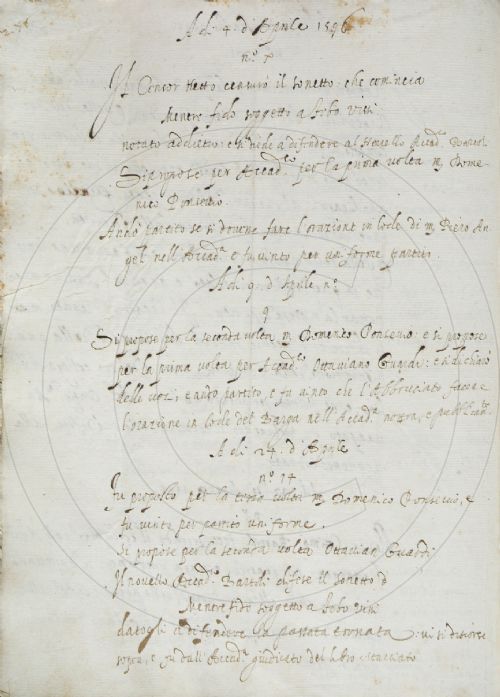 Adi. 4. d'Aprile 1596
n.º 7
Il Concor detto censurò il sonetto: che comincia
Mentre fido soggetto a Febo vissi
notato addietro: e si diede a difendere al Novello Accad.
Si propose per Accad.co per la prima volta m. Dome-
nico
Andò partito se si dovea fare l'orazione in lode di m. Piero An-
gelj nell'Accad.a e fu vinto per uniforme partito.
Adi. 9. d'Aprile, n.º
9
Si propose per la seconda volta m. Domenico e si propose
per la prima volta per Accad.co Ottaviano
delle e andò partito, e fu vinto che l'Abbruciato facesse
l'orazione in lode del Barga nell'Accad.a nostra, e
Adi. 24. d'Aprile
n.º 14
Fu proposto per la terza volta m. Domenico e
fu vinto per partito uniforme.
Si propose per la seconda volta Ottavian
Il novello Accad.co Bartoli difese il sonetto d
Mentre fido soggetto a Febo vissi
datogli a difendere la passata tornata: vi si discorse
sopra, e fu dall'Accad.a giudicato del libro stacciato